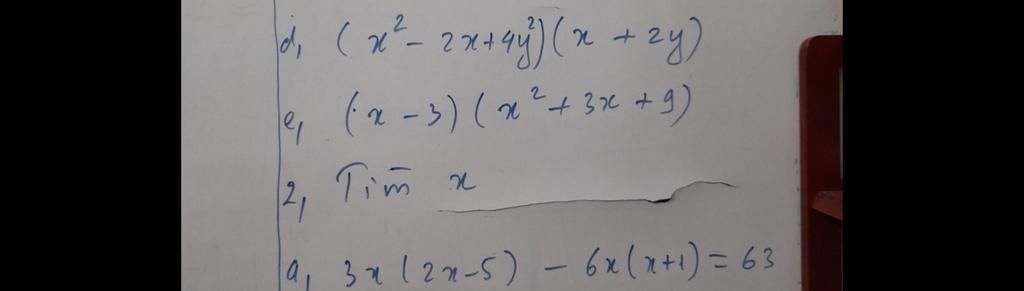 d, (x² - 2x+4y²)(x + 2y)
e, (x - 3)(x² + 3x + 9)
2, Tim x
a, 3x(2x-5) - 6x(x+1) = 63